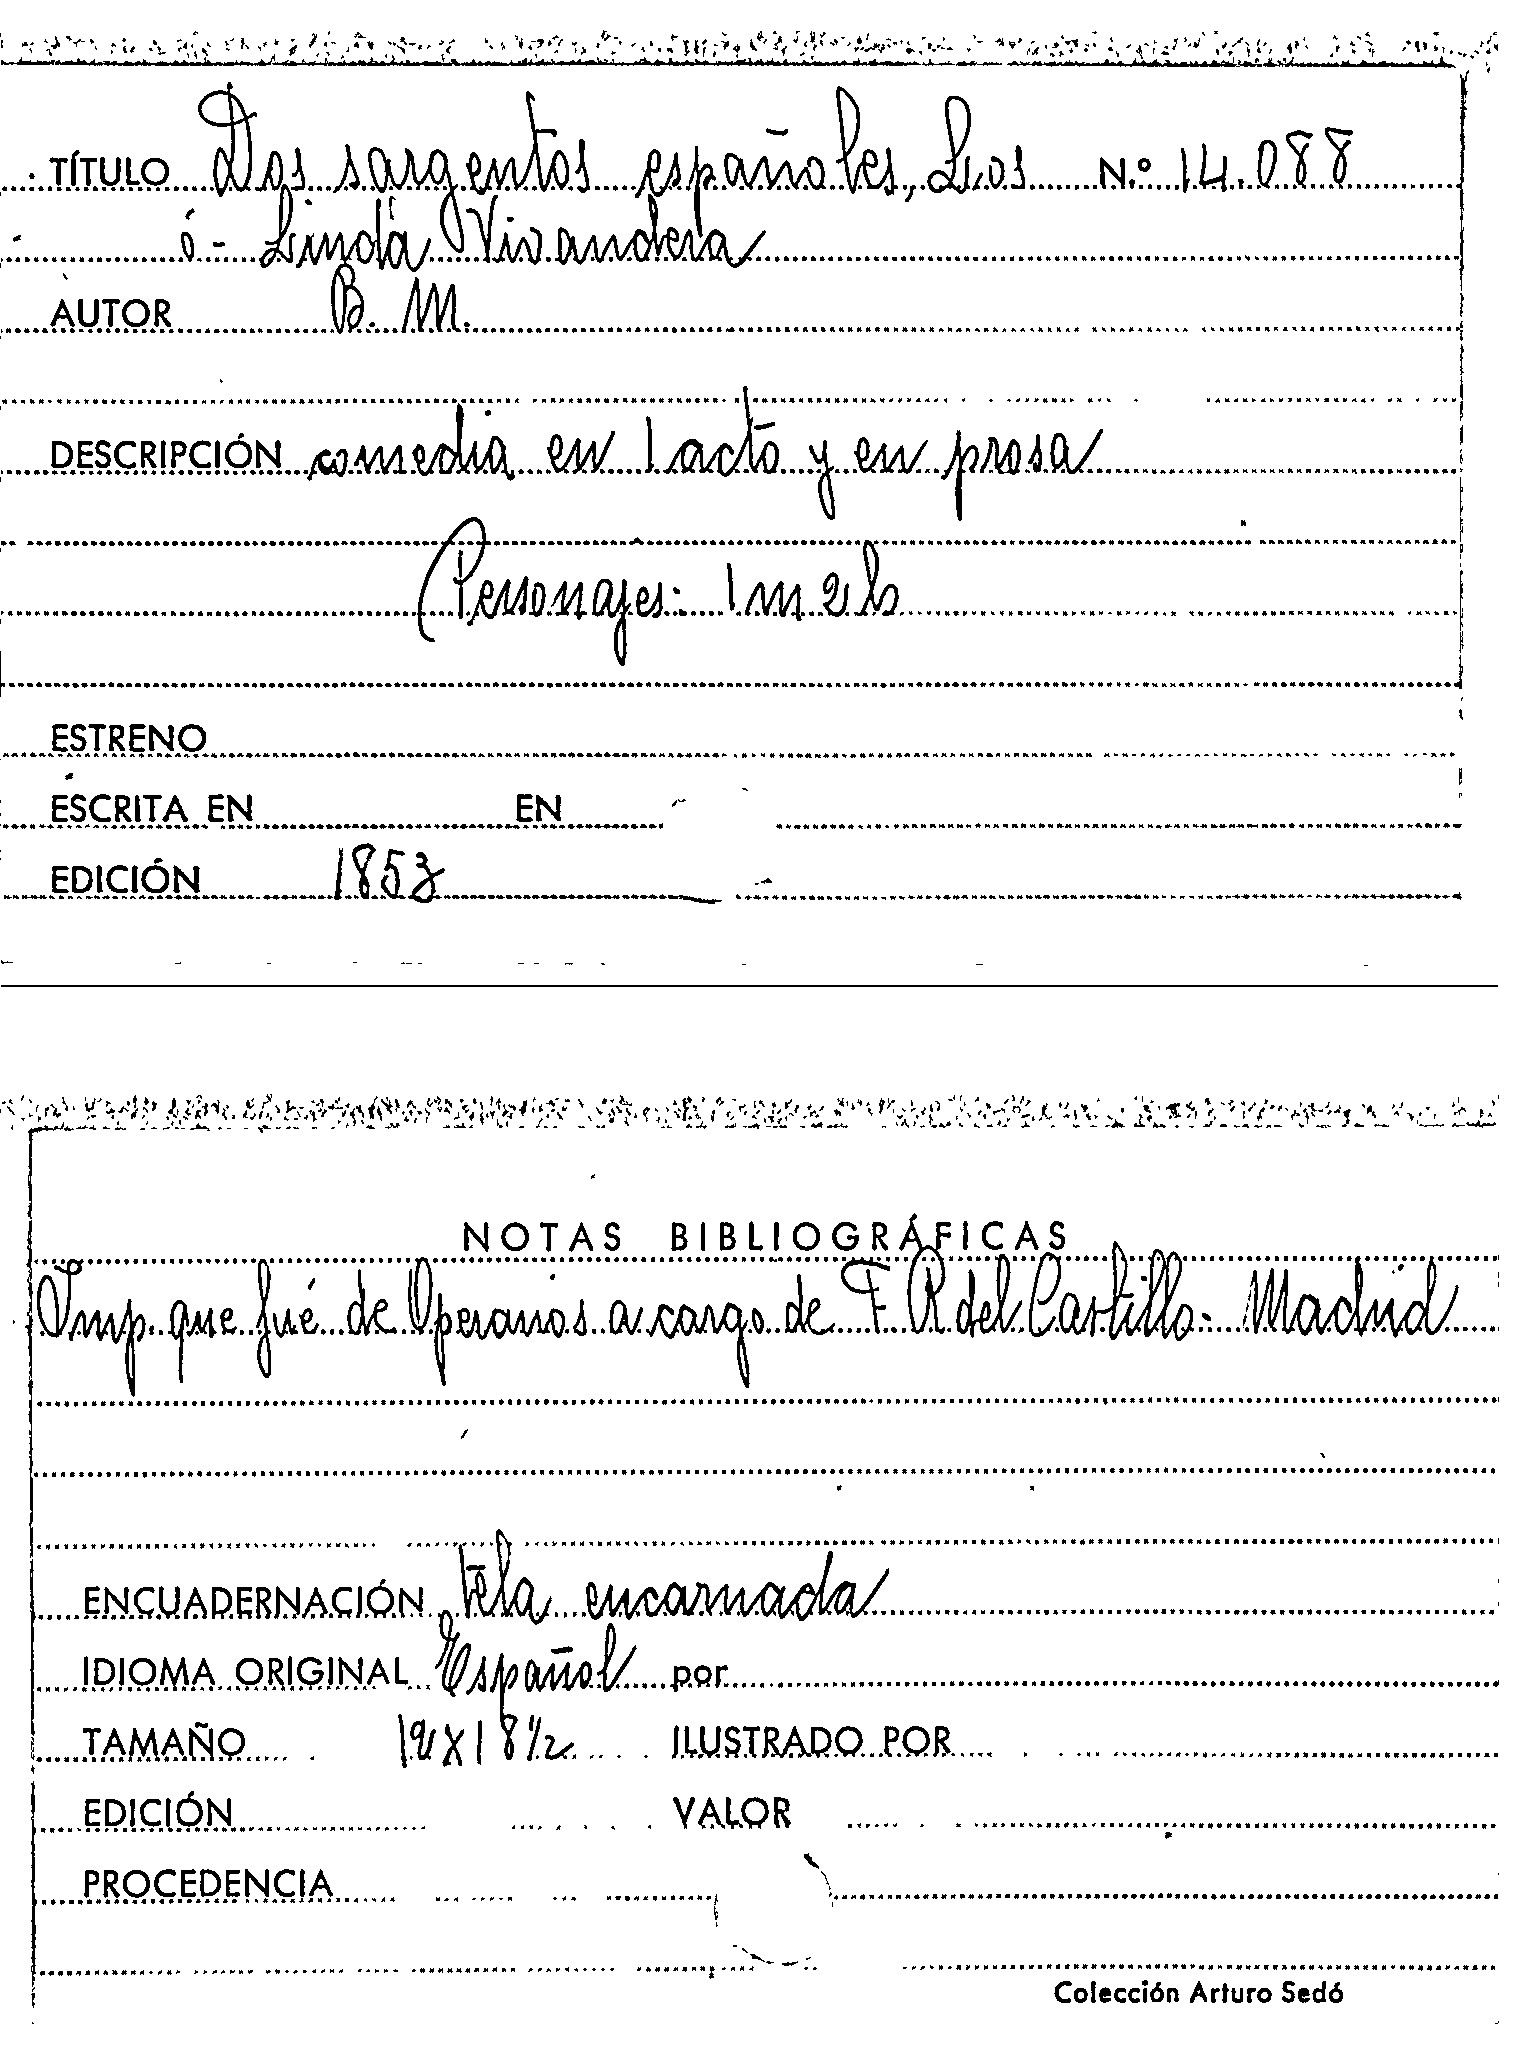 TÍTULO Dos sargentos españoles, Los N.º 14.088
ó - Linda Vivandera
AUTOR B. M.
DESCRIPCIÓN comedia en 1 acto y en prosa
Personajes: 1 m 2 h
ESTRENO
ESCRITA EN EN
EDICIÓN 1853
NOTAS BIBLIOGRÁFICAS
Imp. que fué de Operarios a cargo de F. R del Castillo - Madrid
ENCUADERNACIÓN tela encarnada
IDIOMA ORIGINAL Español por
TAMAÑO 12 X 18 1/2 ILUSTRADO POR
EDICIÓN VALOR
PROCEDENCIA
Colección Arturo Sedó